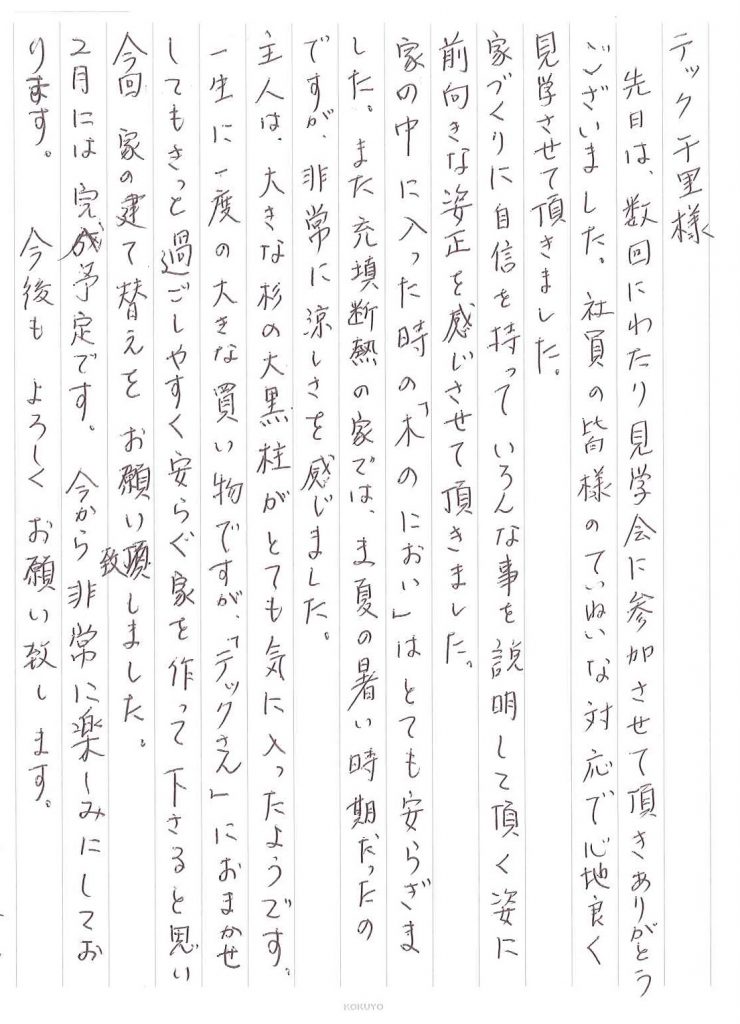 テック千里様
先日は、数回にわたり見学会に参加させて頂きありがとう
ございました。社員の皆様のていねいな対応で心地良く
見学させて頂きました。
家づくりに自信を持って いろんな事を説明して頂く姿に
前向きな姿正を感じさせて頂きました。
家の中に入った時の「木のにおい」はとても安らぎま
した。また充填断熱の家では、ま夏の暑い時期だったの
ですが、非常に涼しさを感じました。
主人は、大きな杉の大黒柱がとても気に入ったようです。
一生に一度の大きな買い物ですが、「テックさん」におまかせ
してもきっと過ごしやすく安らぐ家を作って下さると思い
今回 家の建て替えを お願い致しました。
2月には完成予定です。 今から非常に楽しみにしてお
ります。 今後も よろしく お願い致します。
KOKUYO